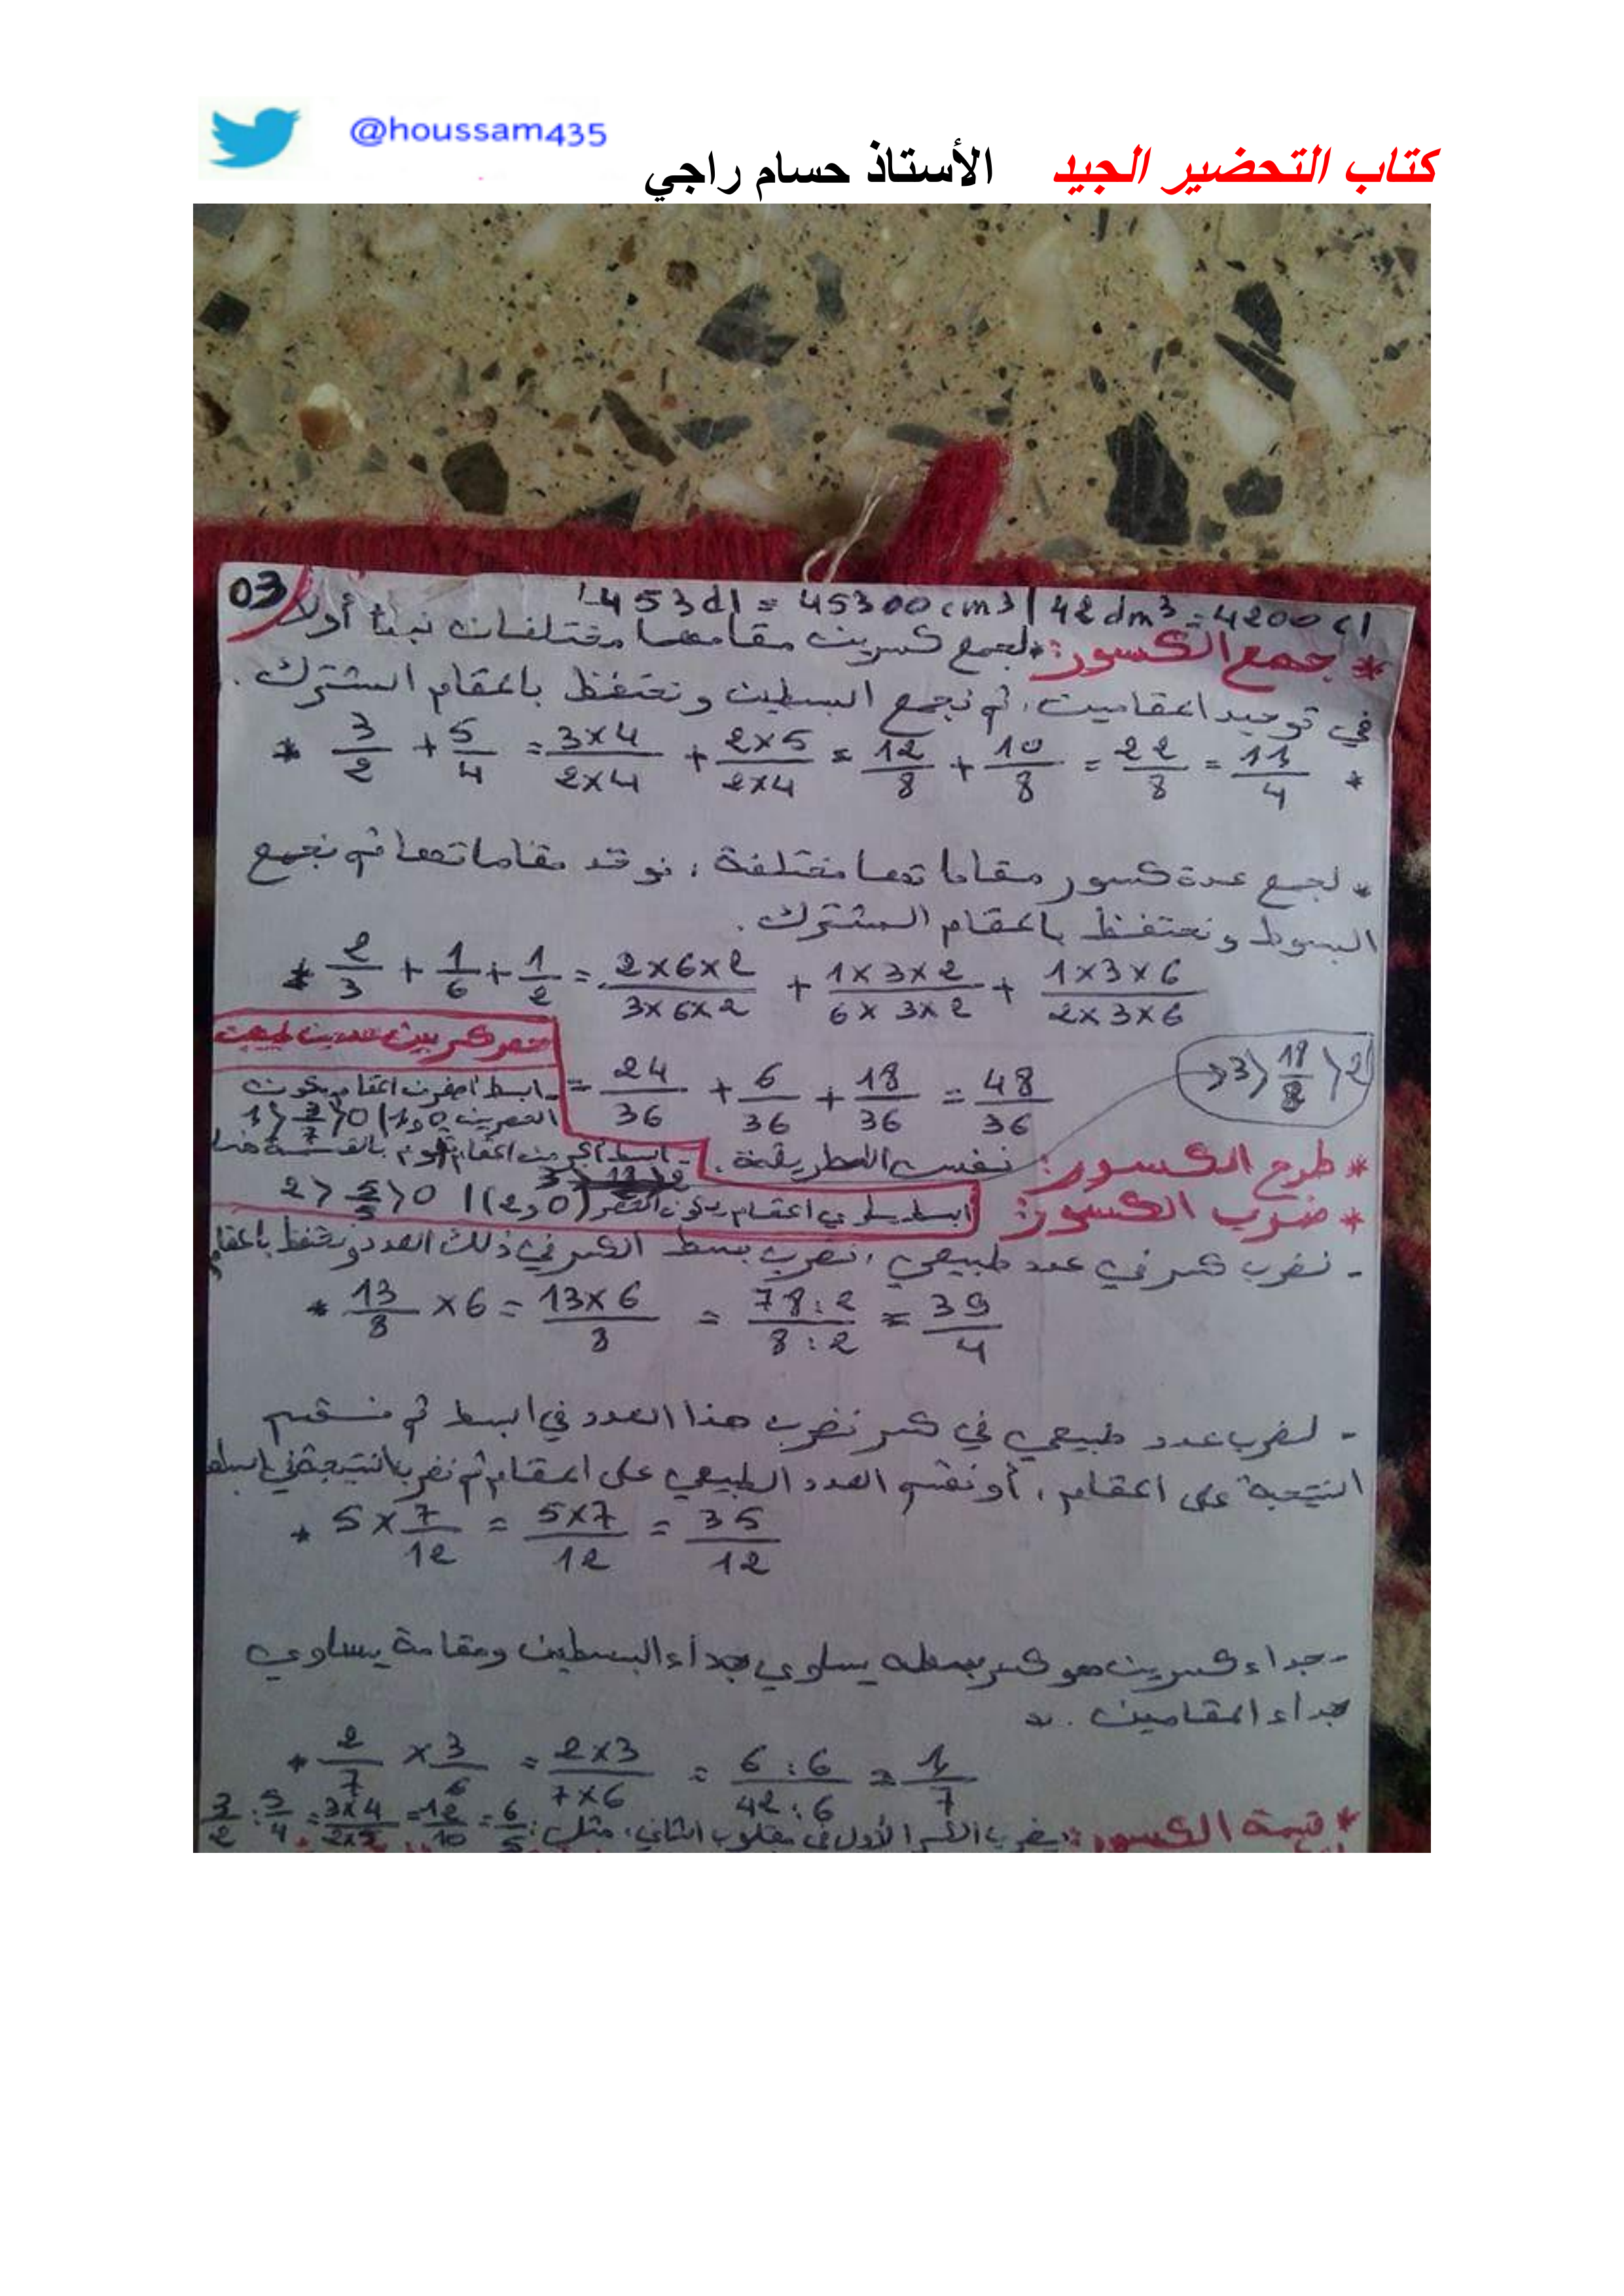 @houssam435
كتاب التحضير الجيد الأستاذ حسام راجي
03
453dl = 45300 cm3 | 42dm3 = 4200 cl
* جمع الكسور: لجمع كسرين مقامهما مختلفان نبدأ أولا
في توحيد المقامين، ثم نجمع البسطين ونحتفظ بالمقام المشترك.
* 3/2 + 5/4 = 3×4/2×4 + 2×5/2×4 = 12/8 + 10/8 = 22/8 = 11/4 *
* لجمع عدة كسور مقاماتها مختلفة، نوحد مقاماتها ثم نجمع
البسوط ونحتفظ بالمقام المشترك.
* 2/3 + 1/6 + 1/2 = 2×6×2/3×6×2 + 1×3×2/6×3×2 + 1×3×6/2×3×6
= 24/36 + 6/36 + 18/36 = 48/36
3 > 18/8 > 2
حصر كسر بين عددين طبيعيين
- البسط أصغر من المقام يكون
الحصر بين 0 و 1 | 0 < 3/7 < 1
- البسط أكبر من المقام نقوم بالقسمة
البسط يساوي المقام يكون الحصر (0 و 2) | 0 < 5/5 < 2
* طرح الكسور: نفس الطريقة.
* ضرب الكسور:
- نضرب كسر في عدد طبيعي، نضرب بسط الكسر في ذلك العدد ونحتفظ بالمقام
* 13/8 ×6 = 13×6/8 = 78:2/8:2 = 39/4
- لضرب عدد طبيعي في كسر نضرب هذا العدد في البسط ثم نقسم
النتيجة على المقام، أو نقسم العدد الطبيعي على المقام ثم نضرب النتيجة في البسط
* 5×7/12 = 5×7/12 = 35/12
- جداء كسرين هو كسر بسطه يساوي جداء البسطين ومقامة يساوي
جداء المقامين.
* 2/7 × 3/6 = 2×3/7×6 = 6:6/42:6 = 1/7
* قيمة الكسور: يضرب الكسر الأول في مقلوب الثاني، مثل: 3/2 : 5/4 = 3×4/2×5 = 12/10 = 6/5